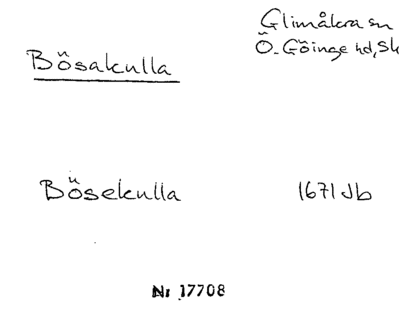 Glimåkra sn
Ö. Göinge hd, Sk
Bösakulla
Bösekulla 1671 Jb
Nr 17708